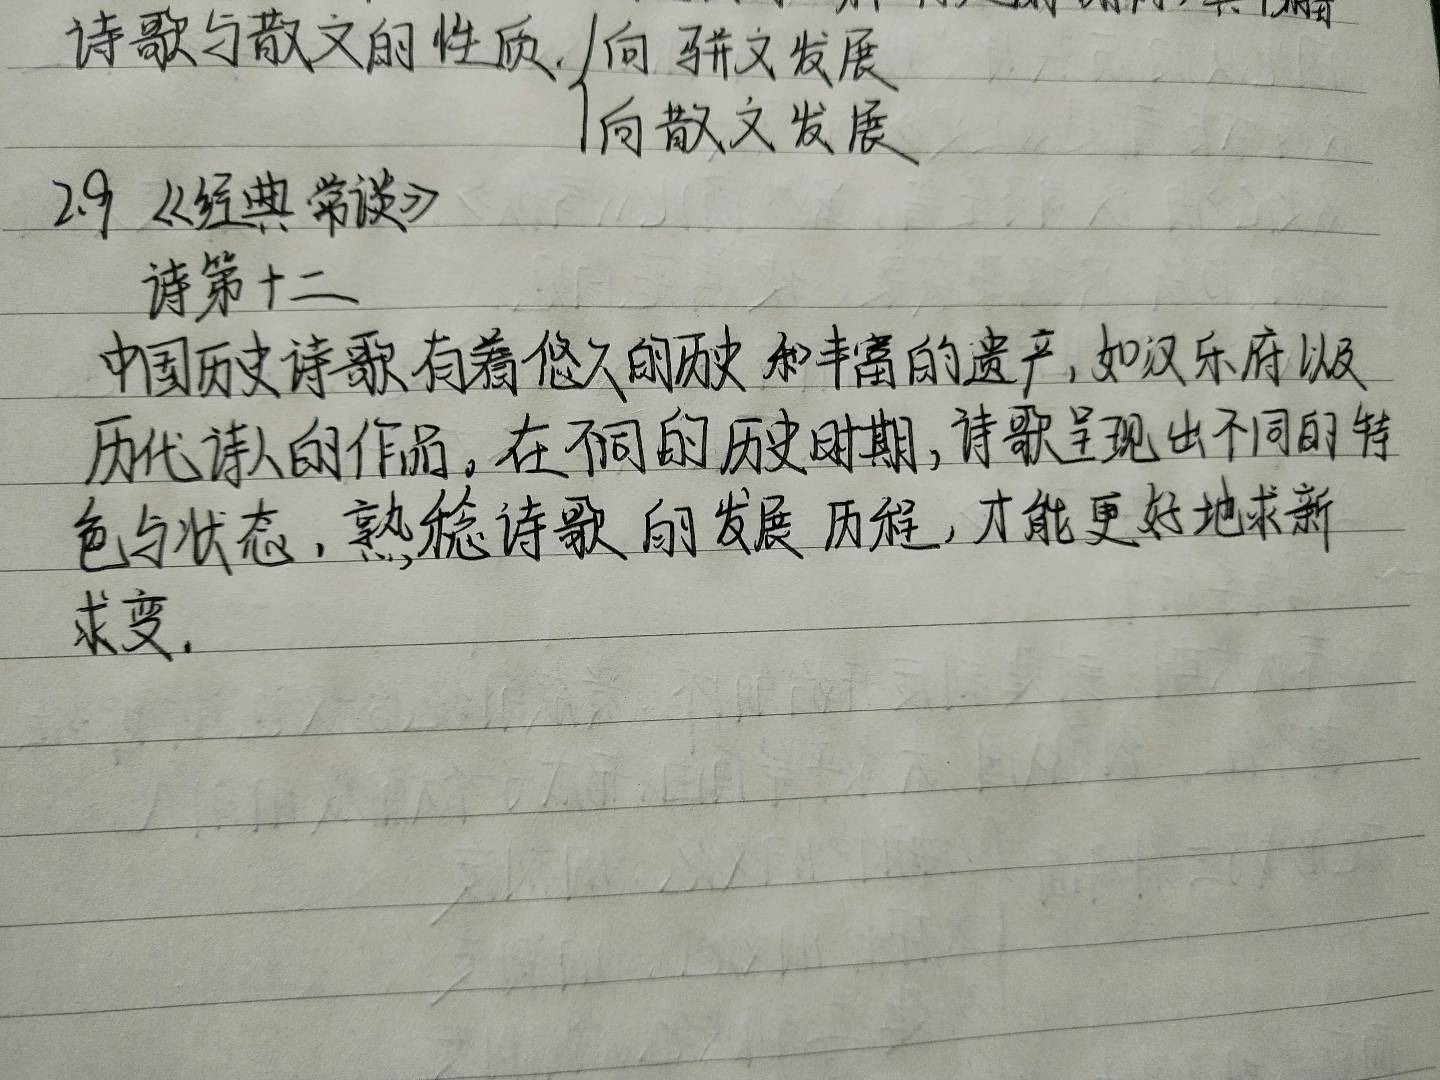 诗歌与散文的性质.{向骈文发展
向散文发展
2.9 《经典常谈》
诗第十二
中国历史诗歌有着悠久的历史和丰富的遗产,如汉乐府以及
历代诗人的作品。在不同的历史时期,诗歌呈现出不同的特
色与状态,熟稔诗歌的发展历程,才能更好地求新
求变.